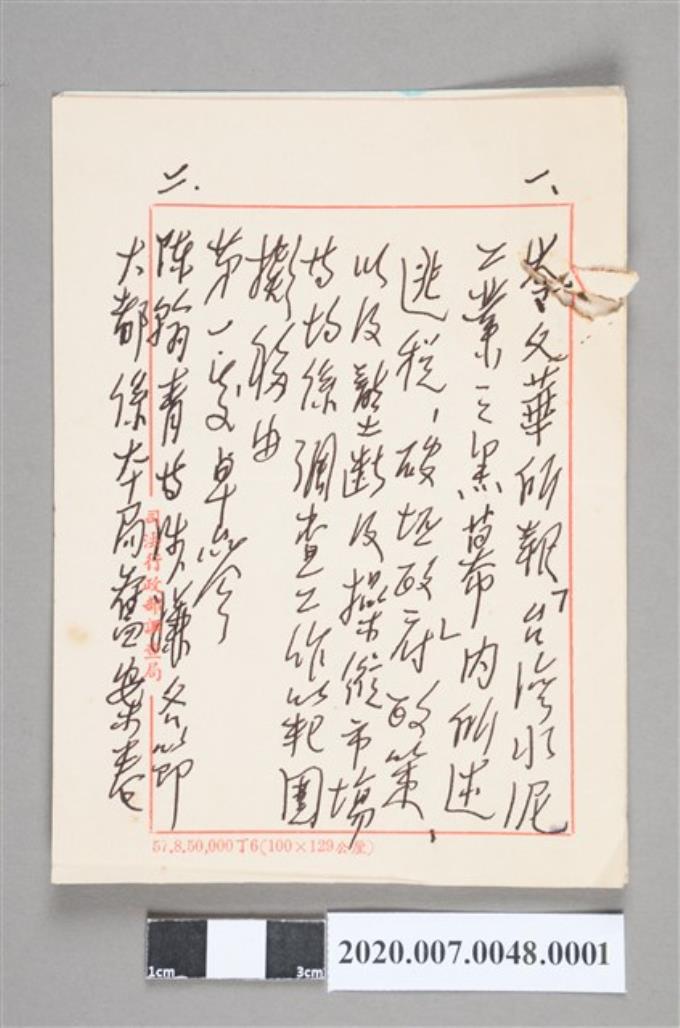 一、
李文華所報「台灣水泥
工業之黑幕」內所述
逃稅，破坯政府政策，
以及壟斷及操縱市場
等均係調查工作範圍
擬移由
第一處卓㕘
二.
陳翰青等涉嫌各節
大都係本局舊案卷
司法行政部調查局
57.8.50,000丁6(100×129公厘)
1cm 3cm
2020.007.0048.0001